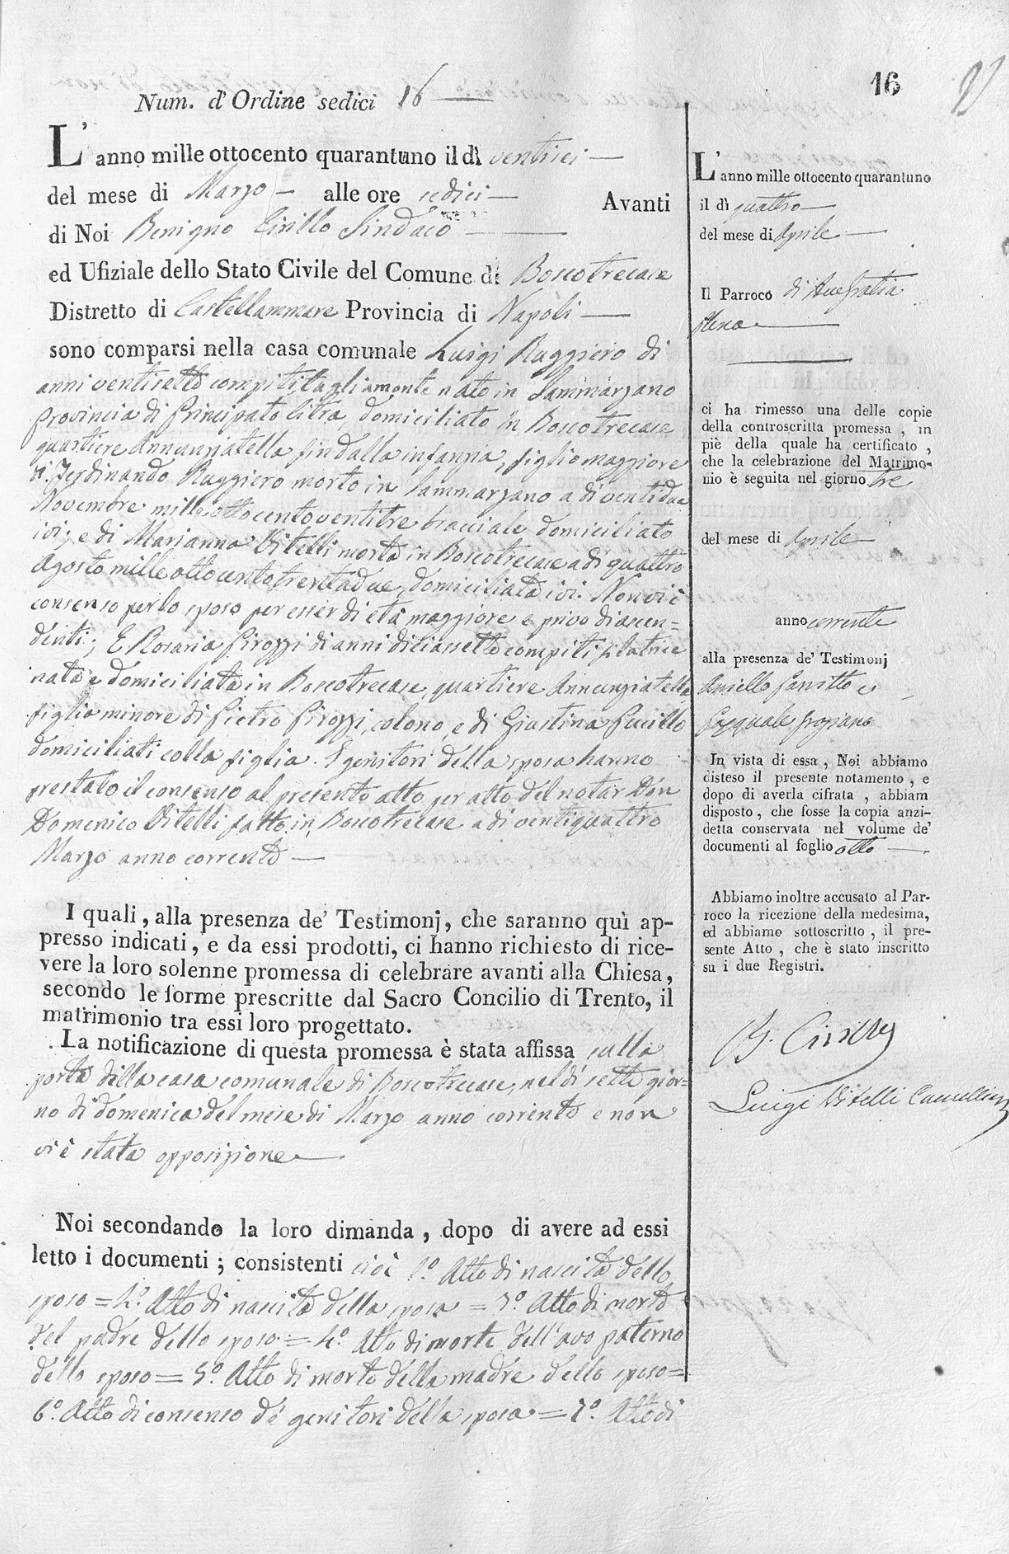 16
Num. d'Ordine sedici 16
L'anno mille ottocento quarantuno il dì
del mese di Marzo alle ore sedici Avanti
di Noi Benigno Cirillo Sindaco
ed Ufiziale dello Stato Civile del Comune di Boscotrecase
Distretto di Castellammare Provincia di Napoli
sono comparsi nella casa comunale Luigi Ruggiero di
anni ventisette compiti tagliamonte nato in Sammarzano
Provincia di Principato Citra, domiciliato in Boscotrecase
quartiere Annunziatella fin dalla infanzia, figlio maggiore
di Ferdinando Ruggiero morto in Sammarzano a dì ventidue
Novembre mille ottocento ventitre bracciale domiciliato
ivi; e di Marianna Vitelli morta in Boscotrecase a dì quattro
Agosto mille ottocento trentadue, domiciliata ivi. Non vi è
consenso per lo sposo per esser di età maggiore e privo di ascen=
denti; E Rosaria Pirozzi di anni diciassette compiti filatrice
nata e domiciliata in Boscotrecase, quartiere Annunziatella
figlia minore di Pietro Pirozzi, colono, e di Giustina
domiciliati colla figlia. I genitori della sposa hanno
prestato il consenso al presente atto per atto del notar Don
Domenico Vitelli fatto in Boscotrecase a dì ventiquattro
Marzo anno corrente
I quali, alla presenza de' Testimonj, che saranno quì ap-
presso indicati, e da essi prodotti, ci hanno richiesto di rice-
vere la loro solenne promessa di celebrare avanti alla Chiesa,
secondo le forme prescritte dal Sacro Concilio di Trento, il
matrimonio tra essi loro progettato.
La notificazione di questa promessa è stata affissa sulla
porta della casa comunale di Boscotrecase, nel dì sette gior=
no di domenica del mese di Marzo anno corrente e non
vi è stata opposizione
Noi secondando la loro dimanda, dopo di avere ad essi
letto i documenti; consistenti cioè 1.° Atto di nascita dello
sposo = 2.° Atto di nascita della sposa = 3.° Atto di morte
del padre dello sposo = 4.° Atto di morte dell'avo paterno
dello sposo = 5.° Atto di morte della madre dello sposo =
6.° Atto di consenso de' genitori della sposa = 7.° Atto di
L'anno mille ottocento quarantuno
il dì quattro
del mese di Aprile
Il Parroco di Ave Gratia
Plena
ci ha rimesso una delle copie
della controscritta promessa, in
piè della quale ha certificato,
che la celebrazione del Matrimo-
nio è seguita nel giorno tre
del mese di Aprile
anno corrente
alla presenza de' Testimonj
Aniello e
Pasquale
In vista di essa, Noi abbiamo
disteso il presente notamento, e
dopo di averla cifrata, abbiam
disposto, che fosse la copia anzi-
detta conservata nel volume de'
documenti al foglio otto
Abbiamo inoltre accusato al Par-
roco la ricezione della medesima,
ed abbiamo sottoscritto, il pre-
sente Atto, che è stato inscritto
su i due Registri.
B. Cirillo
Luigi Vitelli Cancelliere